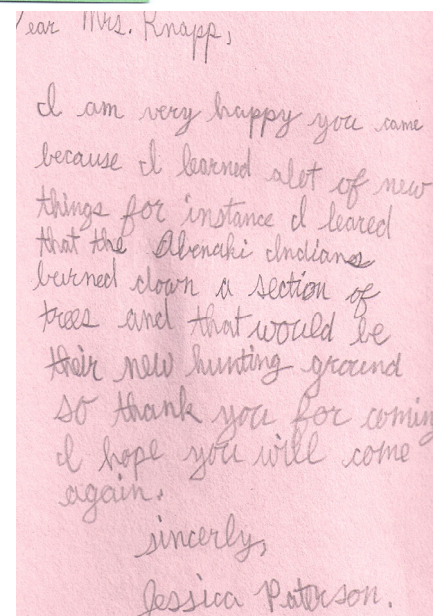 ear Mrs. Knapp,
I am very happy you came
because I learned alot of new
things for instance I leared
that the Abenaki Indians
burned down a section of
trees and that would be
their new hunting ground
so thank you for comin
I hope you will come
again.
sincerly,
Jessica Paterson.